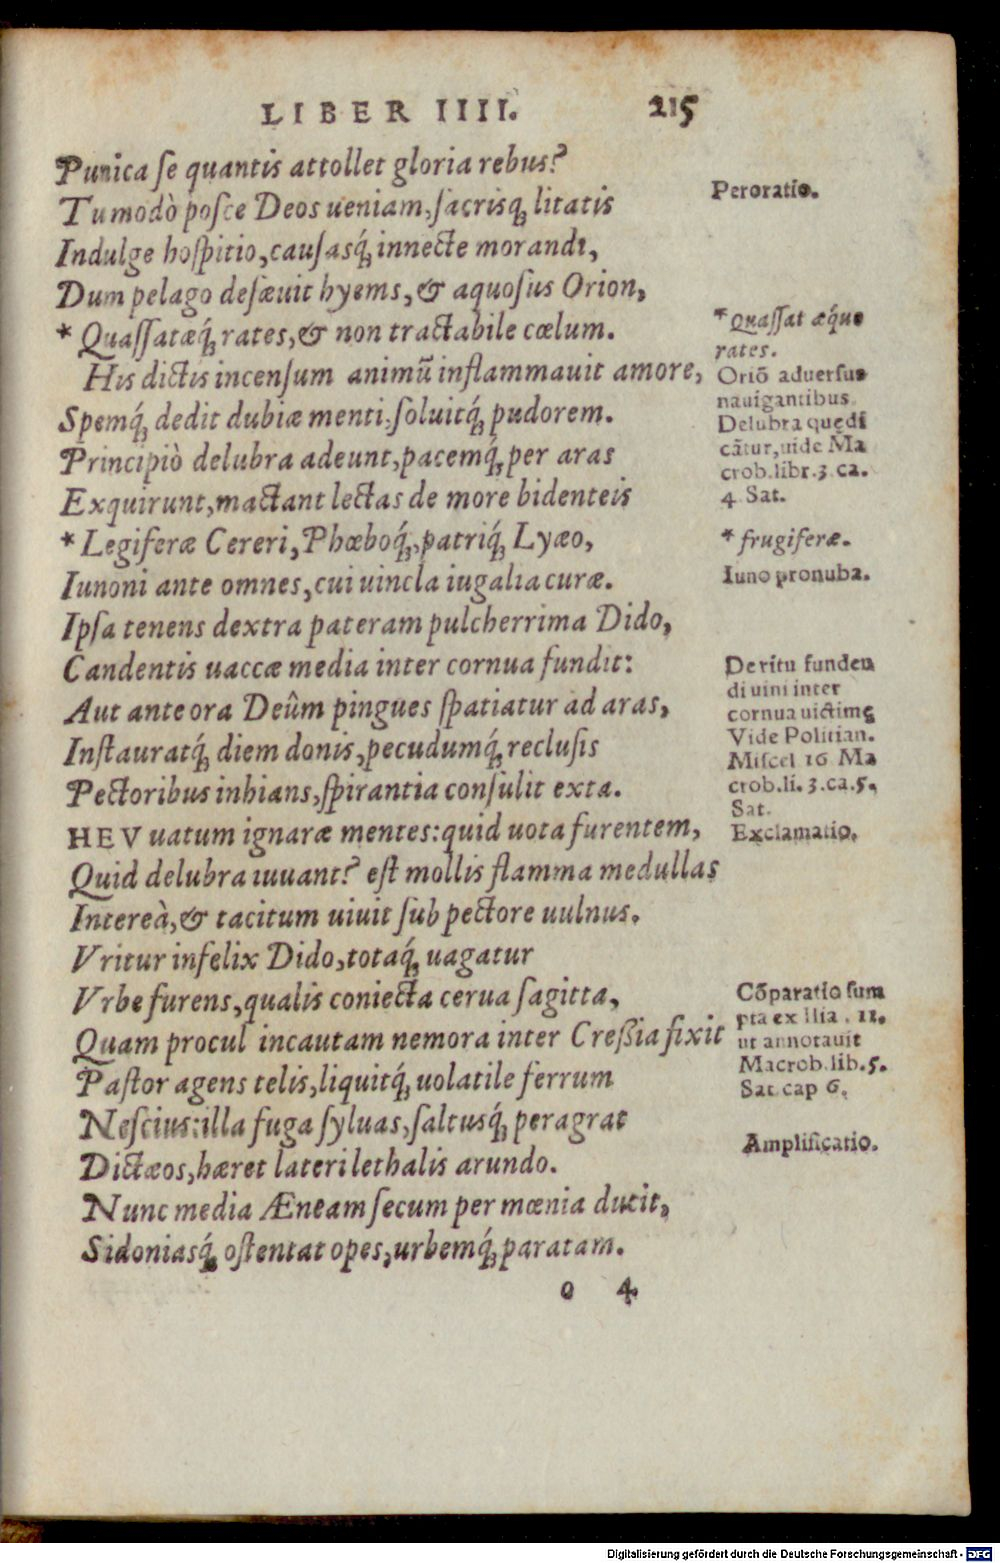 LIBER IIII. 215
Punica se quantis attollet gloria rebus?
Tu modò posce Deos ueniam, sacrisq́; litatis
Indulge hospitio, causasq́; innecte morandi,
Dum pelago desæuit hyems, & aquosus Orion,
* Quassatæq́; rates, & non tractabile cœlum.
His dictis incensum animũ inflammauit amore,
Spemq́; dedit dubiæ menti, soluitq́; pudorem.
Principiò delubra adeunt, pacemq́; per aras
Exquirunt, mactant lectas de more bidenteis
* Legiferæ Cereri, Phœboq́;, patriq́; Lyæo,
Iunoni ante omnes, cui uincla iugalia curæ.
Ipsa tenens dextra pateram pulcherrima Dido,
Candentis uaccæ media inter cornua fundit:
Aut ante ora Deûm pingues spatiatur ad aras,
Instauratq́; diem donis, pecudumq́; reclusis
Pectoribus inhians, spirantia consulit exta.
HEV uatum ignaræ mentes: quid uota furentem,
Quid delubra iuuant? est mollis flamma medullas
Intereà, & tacitum uiuit sub pectore uulnus.
Vritur infelix Dido, totaq́; uagatur
Vrbe furens, qualis coniecta cerua sagitta,
Quam procul incautam nemora inter Cressia fixit
Pastor agens telis, liquitq́; uolatile ferrum
Nescius: illa fuga syluas, saltusq́; peragrat
Dictæos, hæret lateri lethalis arundo.
Nunc media Æneam secum per mœnia ducit,
Sidoniasq́; ostentat opes, urbemq́; paratam.
o 4
Peroratio.
* Quassat æq́ue
rates.
Oriõ aduersus
nauigantibus.
Delubra quędi
cãtur, uide Ma
crob. libr. 3. ca.
4 Sat.
* frugiferæ.
Iuno pronuba.
De ritu funden
di uini inter
cornua uictimę
Vide Politian.
Miscel 16 Ma
crob. li. 3. ca. 5.
Sat.
Exclamatio.
Cõparatio sum
pta ex Ilia. 11.
ut annotauit
Macrob. lib. 5.
Sat. cap 6.
Amplificatio.
Digitalisierung gefördert durch die Deutsche Forschungsgemeinschaft - DFG